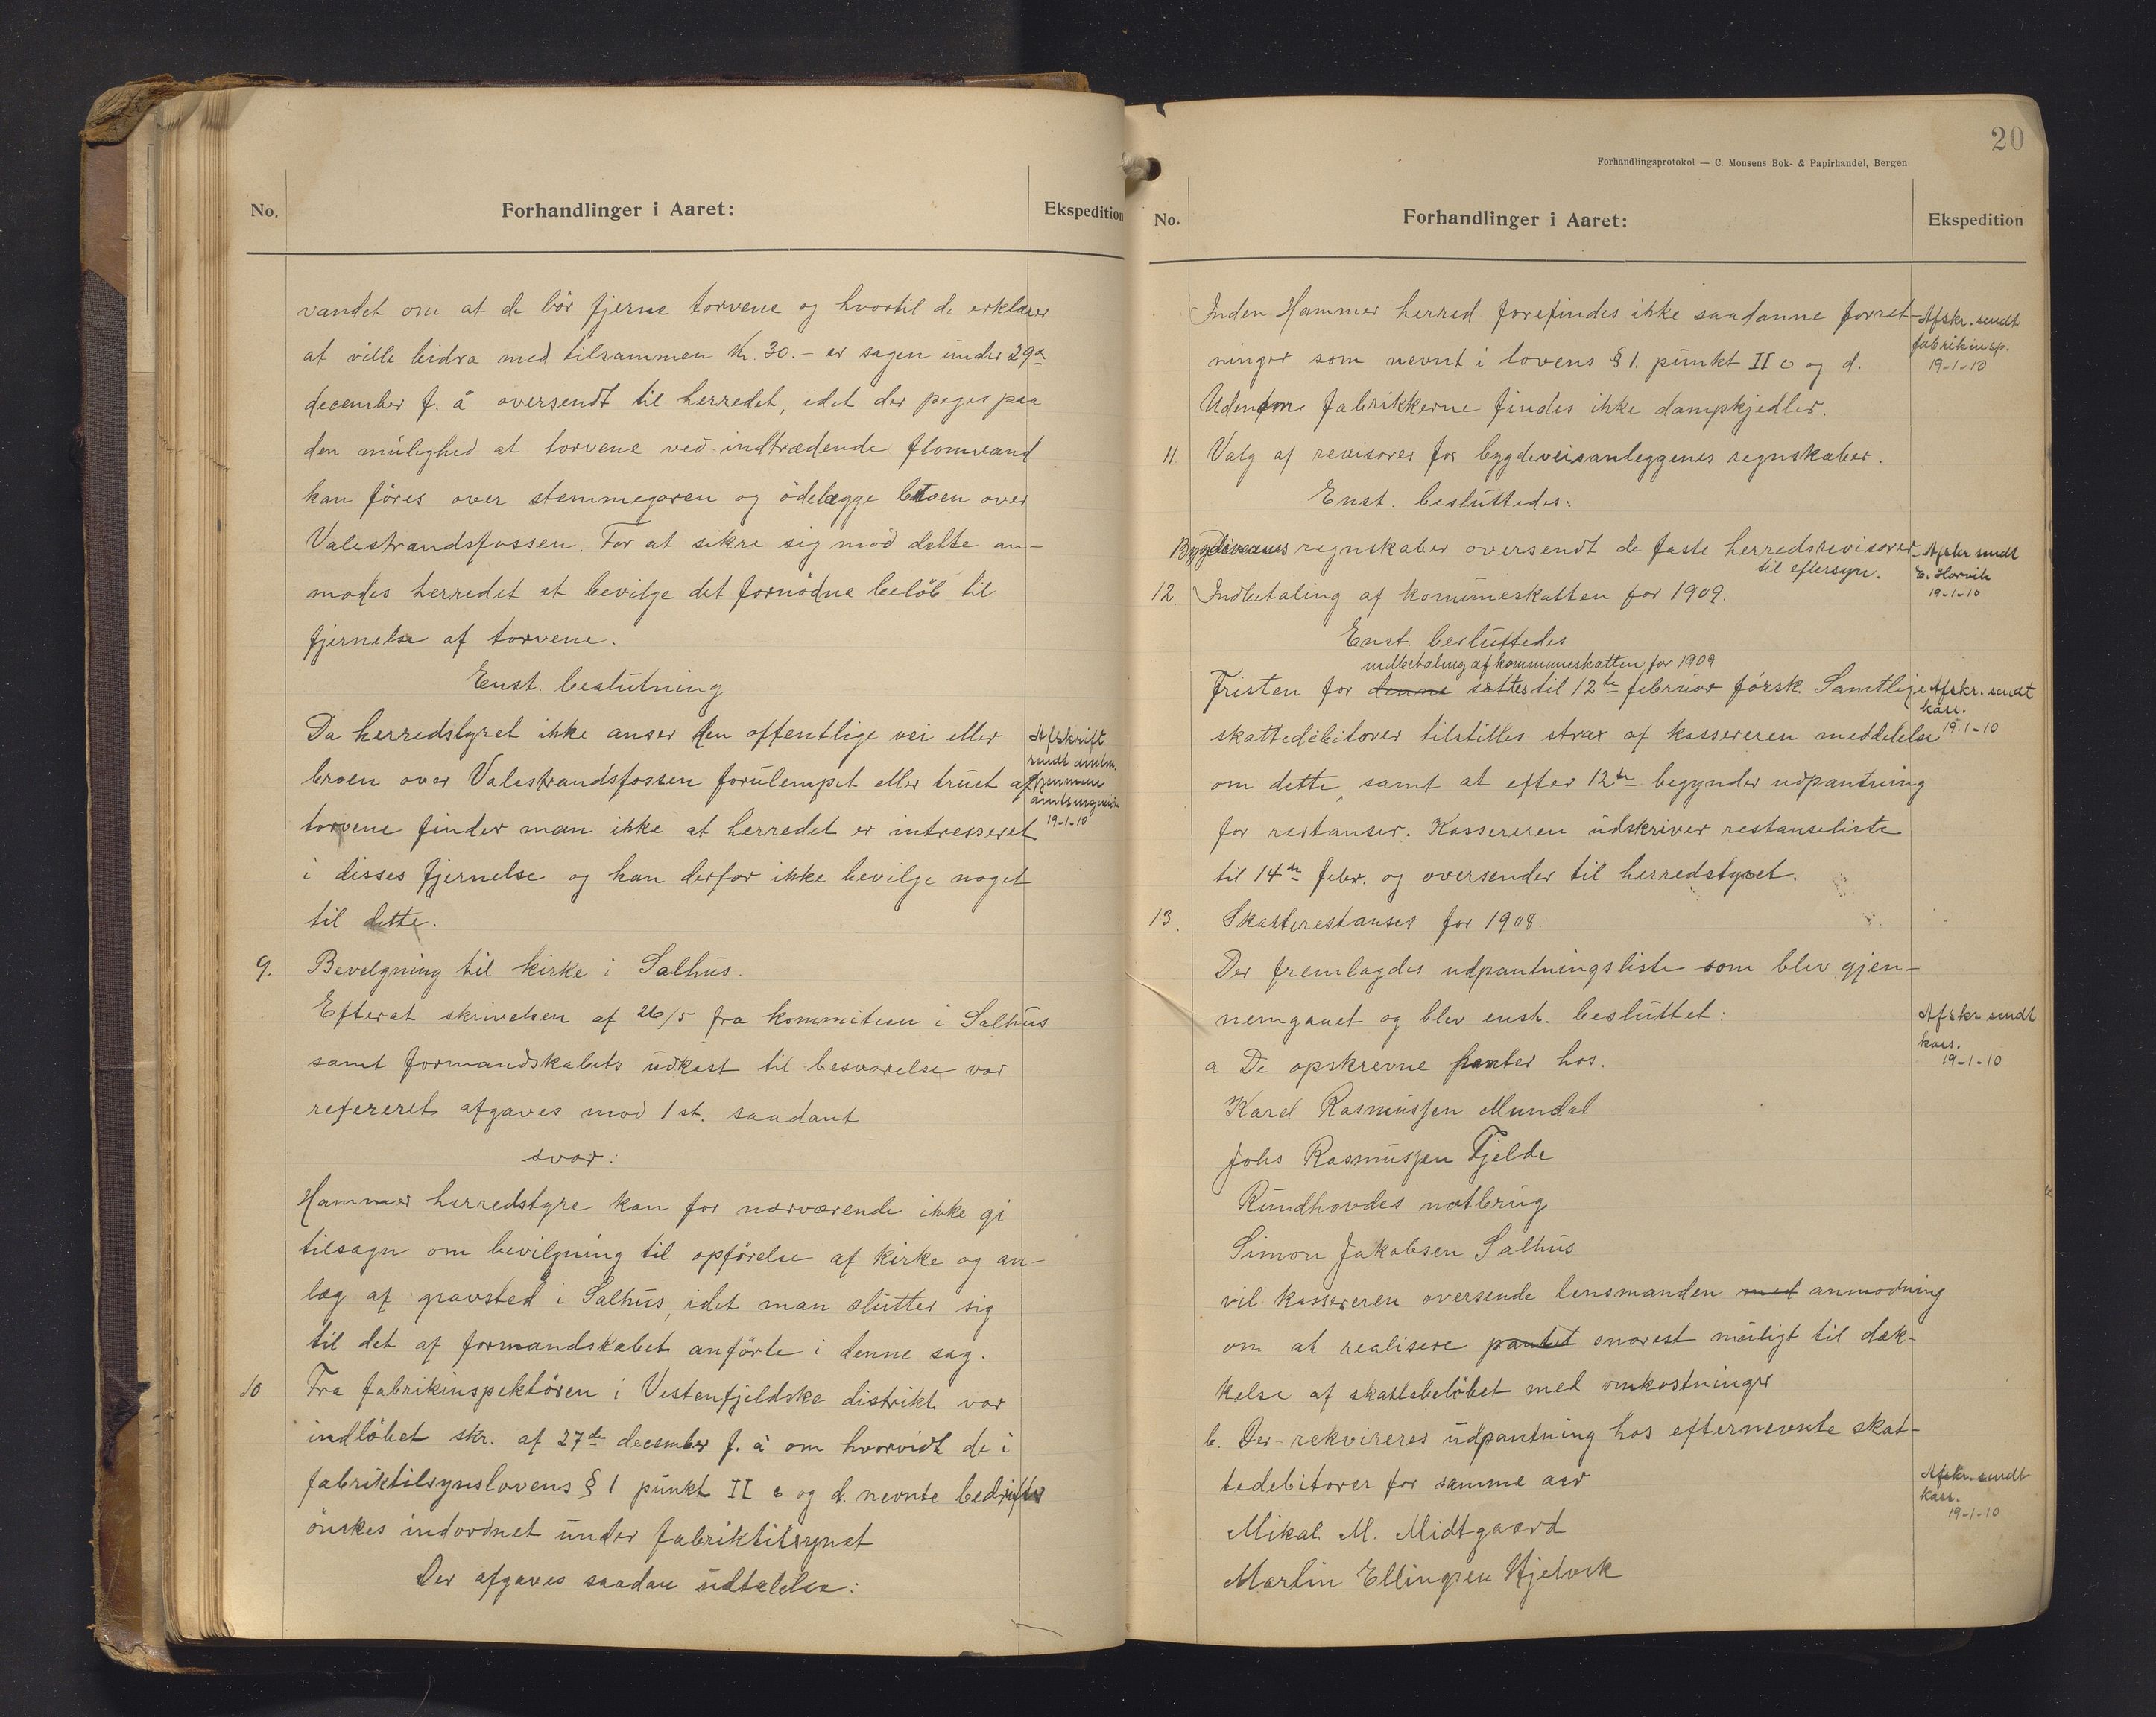 No.
Forhandlinger i Aaret:
Ekspedition
vandet om at de bör fjerne torvene og hvortil de erklærer
at ville bidra med tilsammen Kr. 30.- er sagen under 29de
december f. å oversendt til herredet, idet der peges paa
den mulighed at torvene ved indtrædende flomvand
kan föres over stemmegaren og ödelægge broen over
Valestrandsfossen. For at sikre sig mod dette an-
modes herredet at bevilge det fornödne belöb til
fjernelse af torvene.
Enst. beslutning
Da herredstyret ikke anser den offentlige vei eller
broen over Valestrandsfossen forulempet eller truet af
torvene finder man ikke at herredet er intresseret
i disses fjernelse og kan derfor ikke bevilge noget
til dette.
Afskrift
sendt amtm.
gjennem
amtsingeniör
19-1-10
9. Bevelgning til kirke i Salhus.
Efterat skrivelsen af 26/5 fra kommiteen i Salhus
samt formandskabets udkast til besvarelse var
refereret afgaves mod 1 st. saadant
svar:
Hammer herredstyre kan for nærværende ikke gi
tilsagn om bevilgning til opförelse af kirke og an-
læg af gravsted i Salhus, idet man slutter sig
til det af formandskabet anförte i denne sag.
10 Fra fabrikinspektören i Vestenfjeldske distrikt var
indlöbet skr. af 27de december f. å om hvorvidt de i
fabriktilsynslovens § 1 punkt II c og d. nevnte bedrifter
önskes indordnet under fabriktilsynet
Der afgaves saadan udtalelse:
20
Forhandlingsprotokol — C. Monsens Bok- & Papirhandel, Bergen
No.
Forhandlinger i Aaret:
Ekspedition
Inden Hammer herred forefindes ikke saadanne forret-
ninger som nevnt i lovens § 1. punkt II c og d.
Udenom fabrikkerne findes ikke dampkjedler.
Afskr. sendt
fabrikinsp.
19-1-10
11 Valg af revisorer for bygdeveisanleggenes regnskaber.
Enst. besluttedes:
regnskaber oversendt de faste herredsrevisorer
til eftersyn.
Afskr sendt
E. Horvik
19-1-10
12. Indbetaling af kommuneskatten for 1909.
Enst. besluttedes
indbetaling af kommuneskatten for 1909
Fristen for denne sættes til 12te februar försk. Samtlige
skattedebitorer tilstilles strax af kassereren meddelelse
om dette, samt at efter 12te begynder udpantning
for restanser. Kassereren udskriver restanseliste
til 14de febr. og oversender til herredstyret.
Afskr. sendt
kass.
19-1-10
13. Skatterestanser for 1908.
Der fremlagdes udpantningsliste som blev gjen-
nemgaaet og blev enst. besluttet:
a De opskrevne panter hos.
Afskr sendt
kass.
19-1-10
Karel Rasmussen Mundal
Johs Rasmussen Fjelde
Rundhovdes notbrug
Simon Jakobsen Salhus
vil kassereren oversende lensmanden med anmodning
om at realisere pantet snarest muligt til dæk-
kelse af skattebelöbet med omkostninger
b. Der rekvireres udpantning hos efternevnte skat-
tedebitorer for samme aar
Afskr. sendt
kass.
19-1-10
Mikal M. Midtgaard
Martin Ellingsen Hjelvik